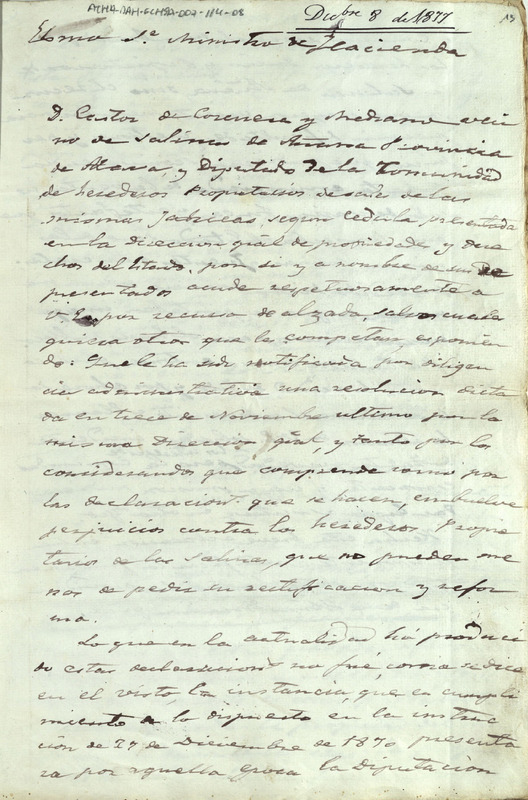 ATHA-DAH-GCHSA-007-114-08
Dicbre 8 de 1877
15
Exmo Sr. Ministro de Hacienda
D. Castor de y Medrano veci
no de Salinas de Añana Provincia
de Alava, y Diputado de la Comunidad
de herederos Propietarios de sal de las
mismas fabricas, segun cedula presentada
en la direccion gral de propiedades y dere
chos del Estado, por si y a nombre de sus Re
presentados acude respetuosamente a
V. E. por recurso de alzada, salvos cuales
quiera otros que le competan, exponien
do: Que le ha sido notificada por diligen
cia administrativa una resolucion dicta
da en trece de Noviembre ultimo por la
misma Direccion gral, y tanto por los
considerandos que comprende como por
las declaraciont. que se hacen, embuelve
perjuicios contra los herederos Propie
tarios de las Salinas, que no pueden me
nos de pedir su rectificacion y refor
ma.
Lo que en la actualidad há produci
do estas declaraciont no fué, como se dice
en el visto, la instancia, que en cumpli
miento a lo dispuesto en la instruc
ción de 27 de Diciembre de 1870 presenta
ra por aquella epoca la Diputacion